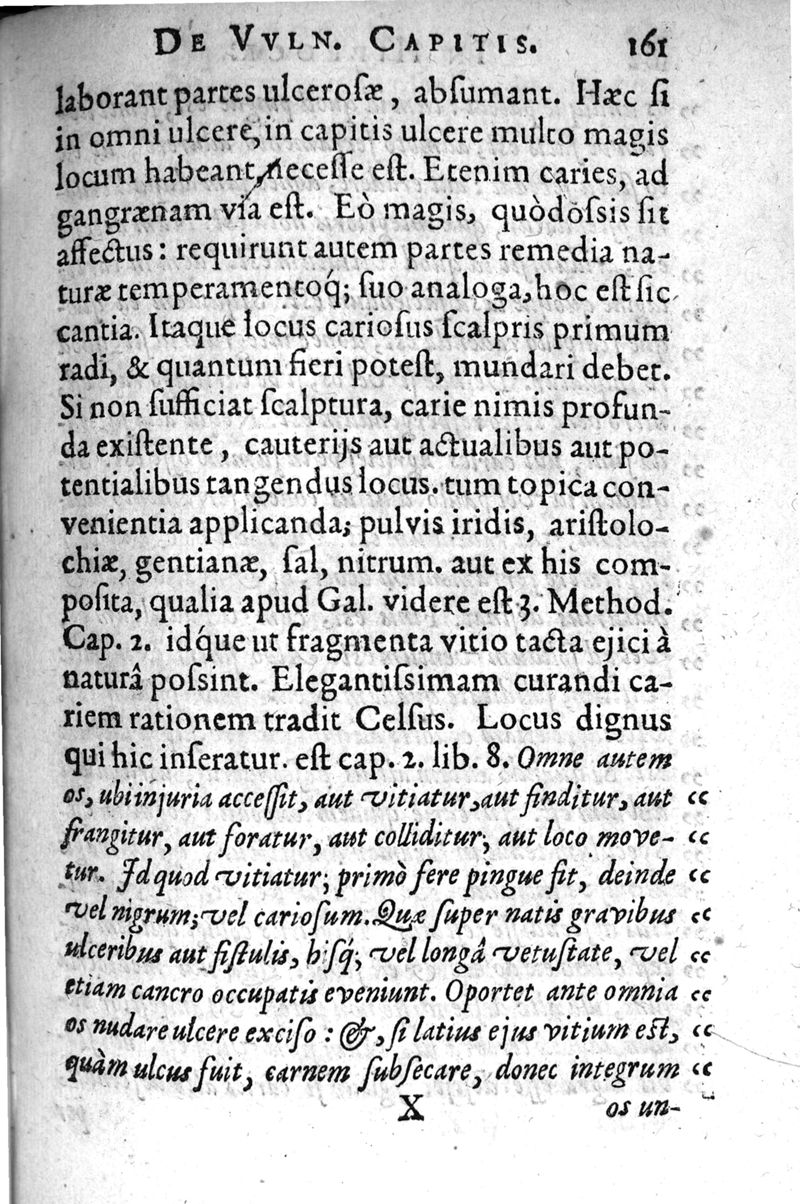 DE VVLN. CAPITIS. 161
laborant partes ulceroſæ, abſumant. Hæc ſi
in omni ulcere, in capitis ulcere multo magis
locum habeant, neceſſe eſt. Etenim caries, ad
gangrænam via eſt. Eò magis, quòd oſsis ſit
affectus: requirunt autem partes remedia na-
turæ temperamentoq́; ſuo analoga, hoc eſt ſic
cantia. Itaque locus carioſus ſcalpris primum
radi, & quantum fieri poteſt, mundari debet.
Si non ſufficiat ſcalptura, carie nimis profun-
da exiſtente, cauterijs aut actualibus aut po-
tentialibus tangendus locus. tum topica con-
venientia applicanda; pulvis iridis, ariſtolo-
chiæ, gentianæ, ſal, nitrum. aut ex his com-
poſita, qualia apud Gal. videre eſt 3. Method.
Cap. 2. idq́ue ut fragmenta vitio tacta ejici à
naturâ poſsint. Elegantiſsimam curandi ca-
riem rationem tradit Celſus. Locus dignus
qui hic inſeratur. eſt cap. 2. lib. 8. Omne autem
os, ubi injuria acceſſit, aut vitiatur, aut finditur, aut “
frangitur, aut foratur, aut colliditur; aut loco move- “
tur. Id quod vitiatur; primò fere pingue fit, deinde “
vel nigrum; vel carioſum. Quæ ſuper natis gravibus “
ulceribus aut fiſtulis, hiſq́; vel longâ vetuſtate, vel “
etiam cancro occupatis eveniunt. Oportet ante omnia “
os nudare ulcere exciſo: &, ſi latius ejus vitium eſt, “
quàm ulcus fuit, carnem ſubſecare, donec integrum “
X os un- “